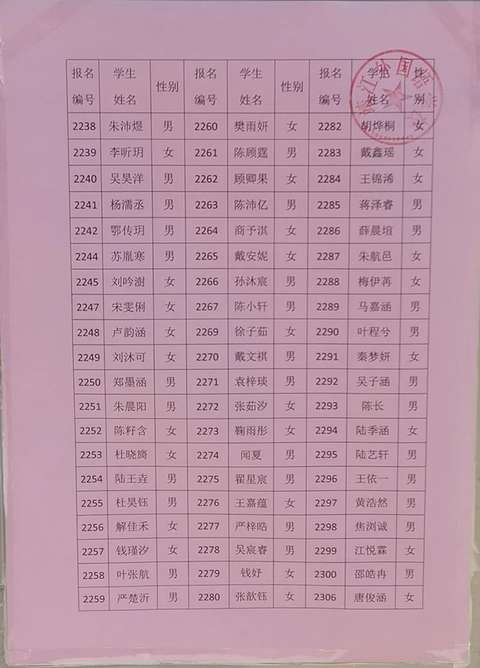 报名编号 学生姓名 性别 报名编号 学生姓名 性别 报名编号 学生姓名 性别
2238 朱沛煜 男 2260 樊雨妍 女 2282 胡烨桐 女
2239 李昕玥 女 2261 陈顾霆 男 2283 戴鑫瑶 女
2240 吴昊洋 男 2262 顾卿果 女 2284 王锦浠 女
2241 杨濡丞 男 2263 陈沛亿 男 2285 蒋泽睿 男
2242 鄂传玥 男 2264 商予淇 女 2286 薛晨垣 男
2244 苏胤寒 男 2265 戴安妮 女 2287 朱航邑 女
2245 刘吟澍 女 2266 孙沐宸 男 2288 梅伊苒 女
2247 宋雯俐 女 2267 陈小轩 男 2289 马嘉涵 男
2248 卢韵涵 女 2269 徐子茹 女 2290 叶程兮 男
2249 刘沐可 女 2270 戴文祺 男 2291 秦梦妍 女
2250 郑墨涵 男 2271 袁梓琰 男 2292 吴子涵 男
2251 朱晨阳 男 2272 张茹汐 女 2293 陈长 男
2252 陈籽含 女 2273 鞠雨彤 女 2294 陆季涵 女
2253 杜晓旖 女 2274 闻夏 男 2295 陆艺轩 男
2254 陆王垚 男 2275 翟星宸 男 2296 王依一 男
2255 杜昊钰 男 2276 王嘉蕴 女 2297 黄浩然 男
2256 解佳禾 女 2277 严梓皓 男 2298 焦浏诚 男
2257 钱瑾汐 女 2278 吴宸睿 男 2299 江悦霖 女
2258 叶张航 男 2279 钱妤 女 2300 邵皓冉 男
2259 严楚沂 男 2280 张歆钰 女 2306 唐俊涵 女